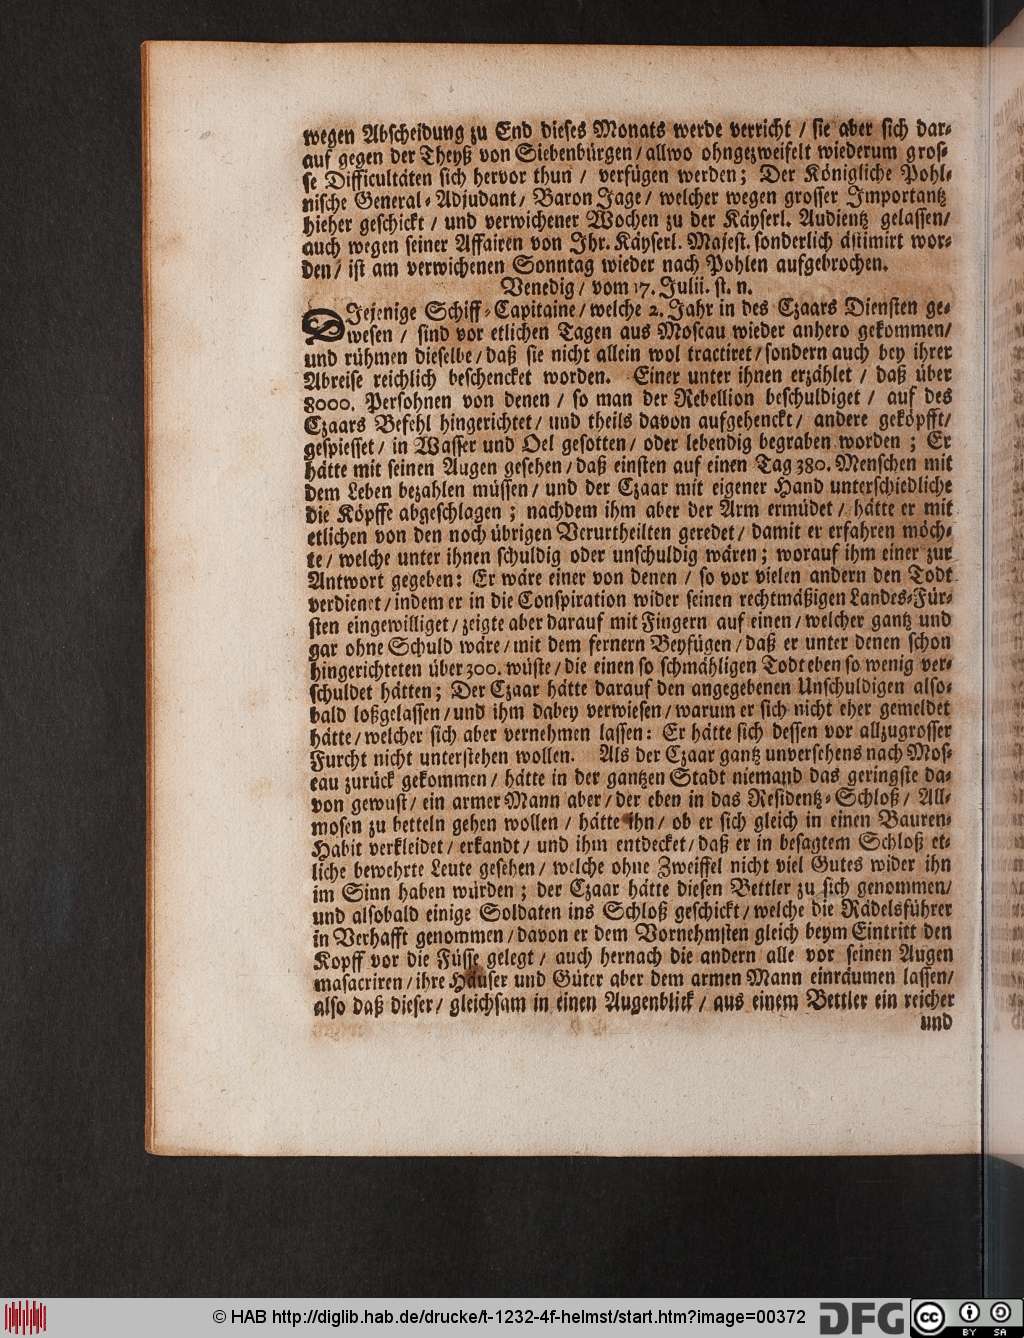 wegen Abscheidung zu End dieses Monats werde verricht / sie aber sich dar-
auf gegen der Theyß von Siebenbürgen / allwo ohngezweifelt wiederum gros-
se Difficultäten sich hervor thun / verfügen werden; Der Königliche Pohl-
nische General-Adjudant / Baron Jage / welcher wegen grosser Importantz
hieher geschickt / und verwichener Wochen zu der Käyserl. Audientz gelassen /
auch wegen seiner Affairen von Ihr. Käyserl. Majest. sonderlich ästimirt wor-
den / ist am verwichenen Sonntag wieder nach Pohlen aufgebrochen.
Venedig / vom 17. Julii. st. n.
DIejenige Schiff-Capitaine / welche 2. Jahr in des Czaars Diensten ge-
wesen / sind vor etlichen Tagen aus Moscau wieder anhero gekommen /
und rühmen dieselbe / daß sie nicht allein wol tractiret / sondern auch bey ihrer
Abreise reichlich beschencket worden. Einer unter ihnen erzählet / daß über
8000. Persohnen von denen / so man der Rebellion beschuldiget / auf des
Czaars Befehl hingerichtet / und theils davon aufgehenckt / andere geköpfft /
gespiesset / in Wasser und Oel gesotten / oder lebendig begraben worden ; Er
hätte mit seinen Augen gesehen / daß einsten auf einen Tag 380. Menschen mit
dem Leben bezahlen müssen / und der Czaar mit eigener Hand unterschiedliche
die Köpffe abgeschlagen ; nachdem ihm aber der Arm ermüdet / hätte er mit
etlichen von den noch übrigen Verurtheilten geredet / damit er erfahren möch-
te / welche unter ihnen schuldig oder unschuldig wären ; worauf ihm einer zur
Antwort gegeben: Er wäre einer von denen / so vor vielen andern den Todt
verdienet / indem er in die Conspiration wider seinen rechtmäßigen Landes-Für-
sten eingewilliget / zeigte aber darauf mit Fingern auf einen / welcher gantz und
gar ohne Schuld wäre / mit dem fernern Beyfügen / daß er unter denen schon
hingerichteten über 300. wüste / die einen so schmähligen Todt eben so wenig ver-
schuldet hätten; Der Czaar hätte darauf den angegebenen Unschuldigen also-
bald loßgelassen / und ihm dabey verwiesen / warum er sich nicht eher gemeldet
hätte / welcher sich aber vernehmen lassen: Er hätte sich dessen vor allzugrosser
Furcht nicht unterstehen wollen. Als der Czaar gantz unversehens nach Mos-
cau zurück gekommen / hätte in der gantzen Stadt niemand das geringste da-
von gewust / ein armer Mann aber / der eben in das Residentz-Schloß / All-
mosen zu betteln gehen wollen / hätte ihn / ob er sich gleich in einen Bauren-
Habit verkleidet / erkandt / und ihm entdecket / daß er in besagtem Schloß et-
liche bewehrte Leute gesehen / welche ohne Zweiffel nicht viel Gutes wider ihn
im Sinn haben würden ; der Czaar hätte diesen Bettler zu sich genommen /
und alsobald einige Soldaten ins Schloß geschickt / welche die Rädelsführer
in Verhafft genommen / davon er dem Vornehmsten gleich beym Eintritt den
Kopff vor die Füsse gelegt / auch hernach die andern alle vor seinen Augen
masacriren / ihre Häuser und Güter aber dem armen Mann einräumen lassen /
also daß dieser / gleichsam in einen Augenblick / aus einem Bettler ein reicher
und
© HAB http://diglib.hab.de/drucke/t-1232-4f-helmst/start.htm?image=00372
DFG
cc BY SA